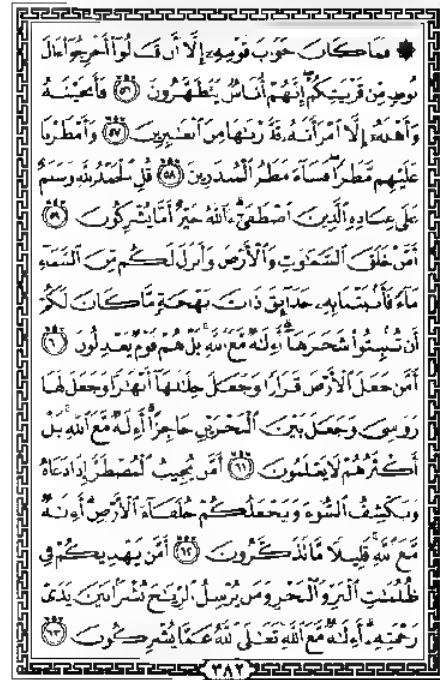 ۞ فَمَا كَانَ جَوَابَ قَوْمِهِۦٓ إِلَّآ أَن قَالُوٓا۟ أَخْرِجُوٓا۟ ءَالَ
لُوطٍ مِّن قَرْيَتِكُمْ ۖ إِنَّهُمْ أُنَاسٌ يَتَطَهَّرُونَ ٥٦ فَأَنجَيْنَـٰهُ
وَأَهْلَهُۥٓ إِلَّا ٱمْرَأَتَهُۥ قَدَّرْنَـٰهَا مِنَ ٱلْغَـٰبِرِينَ ٥٧ وَأَمْطَرْنَا
عَلَيْهِم مَّطَرًا ۖ فَسَآءَ مَطَرُ ٱلْمُنذَرِينَ ٥٨ قُلِ ٱلْحَمْدُ لِلَّهِ وَسَلَـٰمٌ
عَلَىٰ عِبَادِهِ ٱلَّذِينَ ٱصْطَفَىٰٓ ۗ ءَآللَّهُ خَيْرٌ أَمَّا يُشْرِكُونَ ٥٩
أَمَّنْ خَلَقَ ٱلسَّمَـٰوَٰتِ وَٱلْأَرْضَ وَأَنزَلَ لَكُم مِّنَ ٱلسَّمَآءِ
مَآءً فَأَنۢبَتْنَا بِهِۦ حَدَآئِقَ ذَاتَ بَهْجَةٍ مَّا كَانَ لَكُمْ
أَن تُنۢبِتُوا۟ شَجَرَهَآ ۗ أَءِلَـٰهٌ مَّعَ ٱللَّهِ ۚ بَلْ هُمْ قَوْمٌ يَعْدِلُونَ ٦٠
أَمَّن جَعَلَ ٱلْأَرْضَ قَرَارًا وَجَعَلَ خِلَـٰلَهَآ أَنْهَـٰرًا وَجَعَلَ لَهَا
رَوَٰسِىَ وَجَعَلَ بَيْنَ ٱلْبَحْرَيْنِ حَاجِزًا ۗ أَءِلَـٰهٌ مَّعَ ٱللَّهِ ۚ بَلْ
أَكْثَرُهُمْ لَا يَعْلَمُونَ ٦١ أَمَّن يُجِيبُ ٱلْمُضْطَرَّ إِذَا دَعَاهُ
وَيَكْشِفُ ٱلسُّوٓءَ وَيَجْعَلُكُمْ خُلَفَآءَ ٱلْأَرْضِ ۗ أَءِلَـٰهٌ
مَّعَ ٱللَّهِ ۚ قَلِيلًا مَّا تَذَكَّرُونَ ٦٢ أَمَّن يَهْدِيكُمْ فِى
ظُلُمَـٰتِ ٱلْبَرِّ وَٱلْبَحْرِ وَمَن يُرْسِلُ ٱلرِّيَـٰحَ بُشْرًۢا بَيْنَ يَدَىْ
رَحْمَتِهِۦٓ ۗ أَءِلَـٰهٌ مَّعَ ٱللَّهِ ۚ تَعَـٰلَى ٱللَّهُ عَمَّا يُشْرِكُونَ ٦٣
٣٨٢